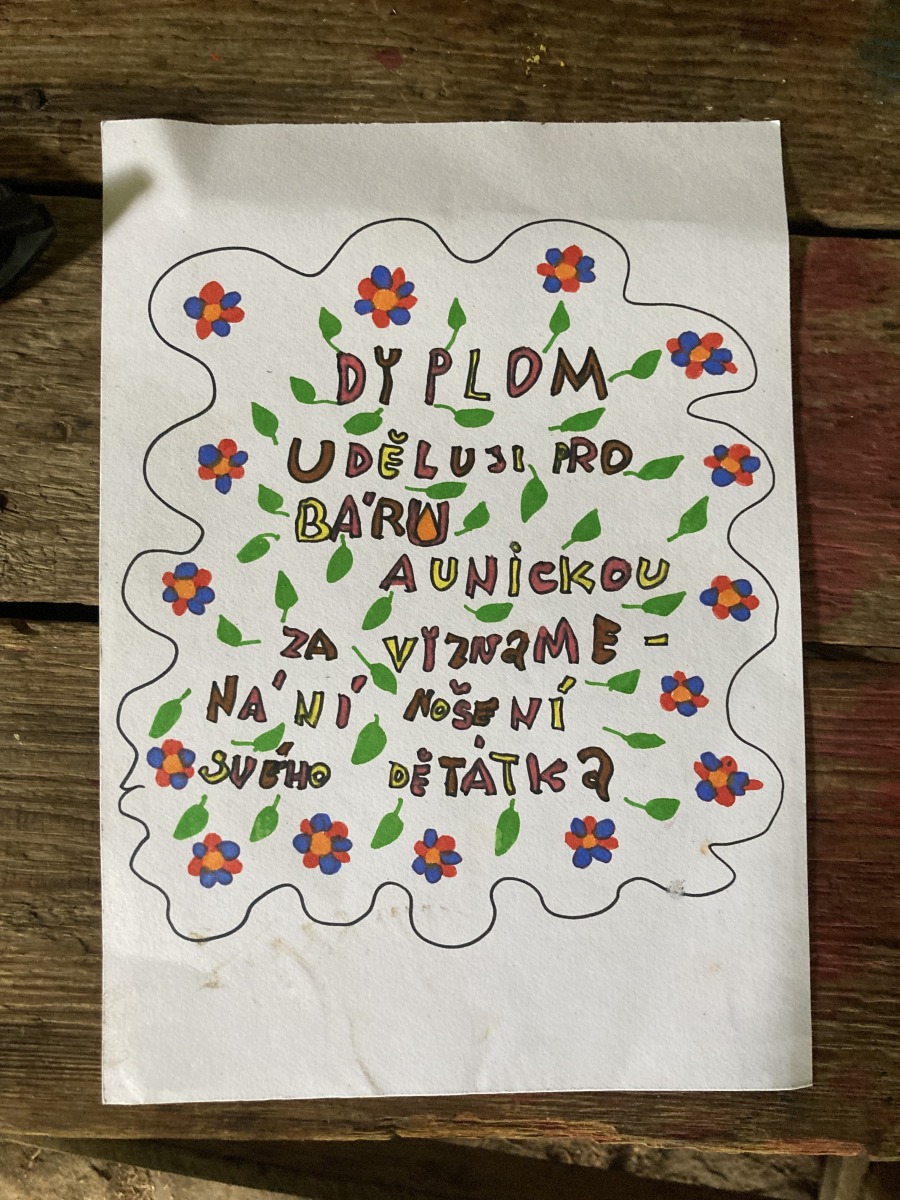 DYPLOM
UDĚLUJI PRO
BÁRU
AUNICKOU
ZA VÍZNAME-
NÁNÍ NOŠENÍ
SVÉHO DĚTÁTKA